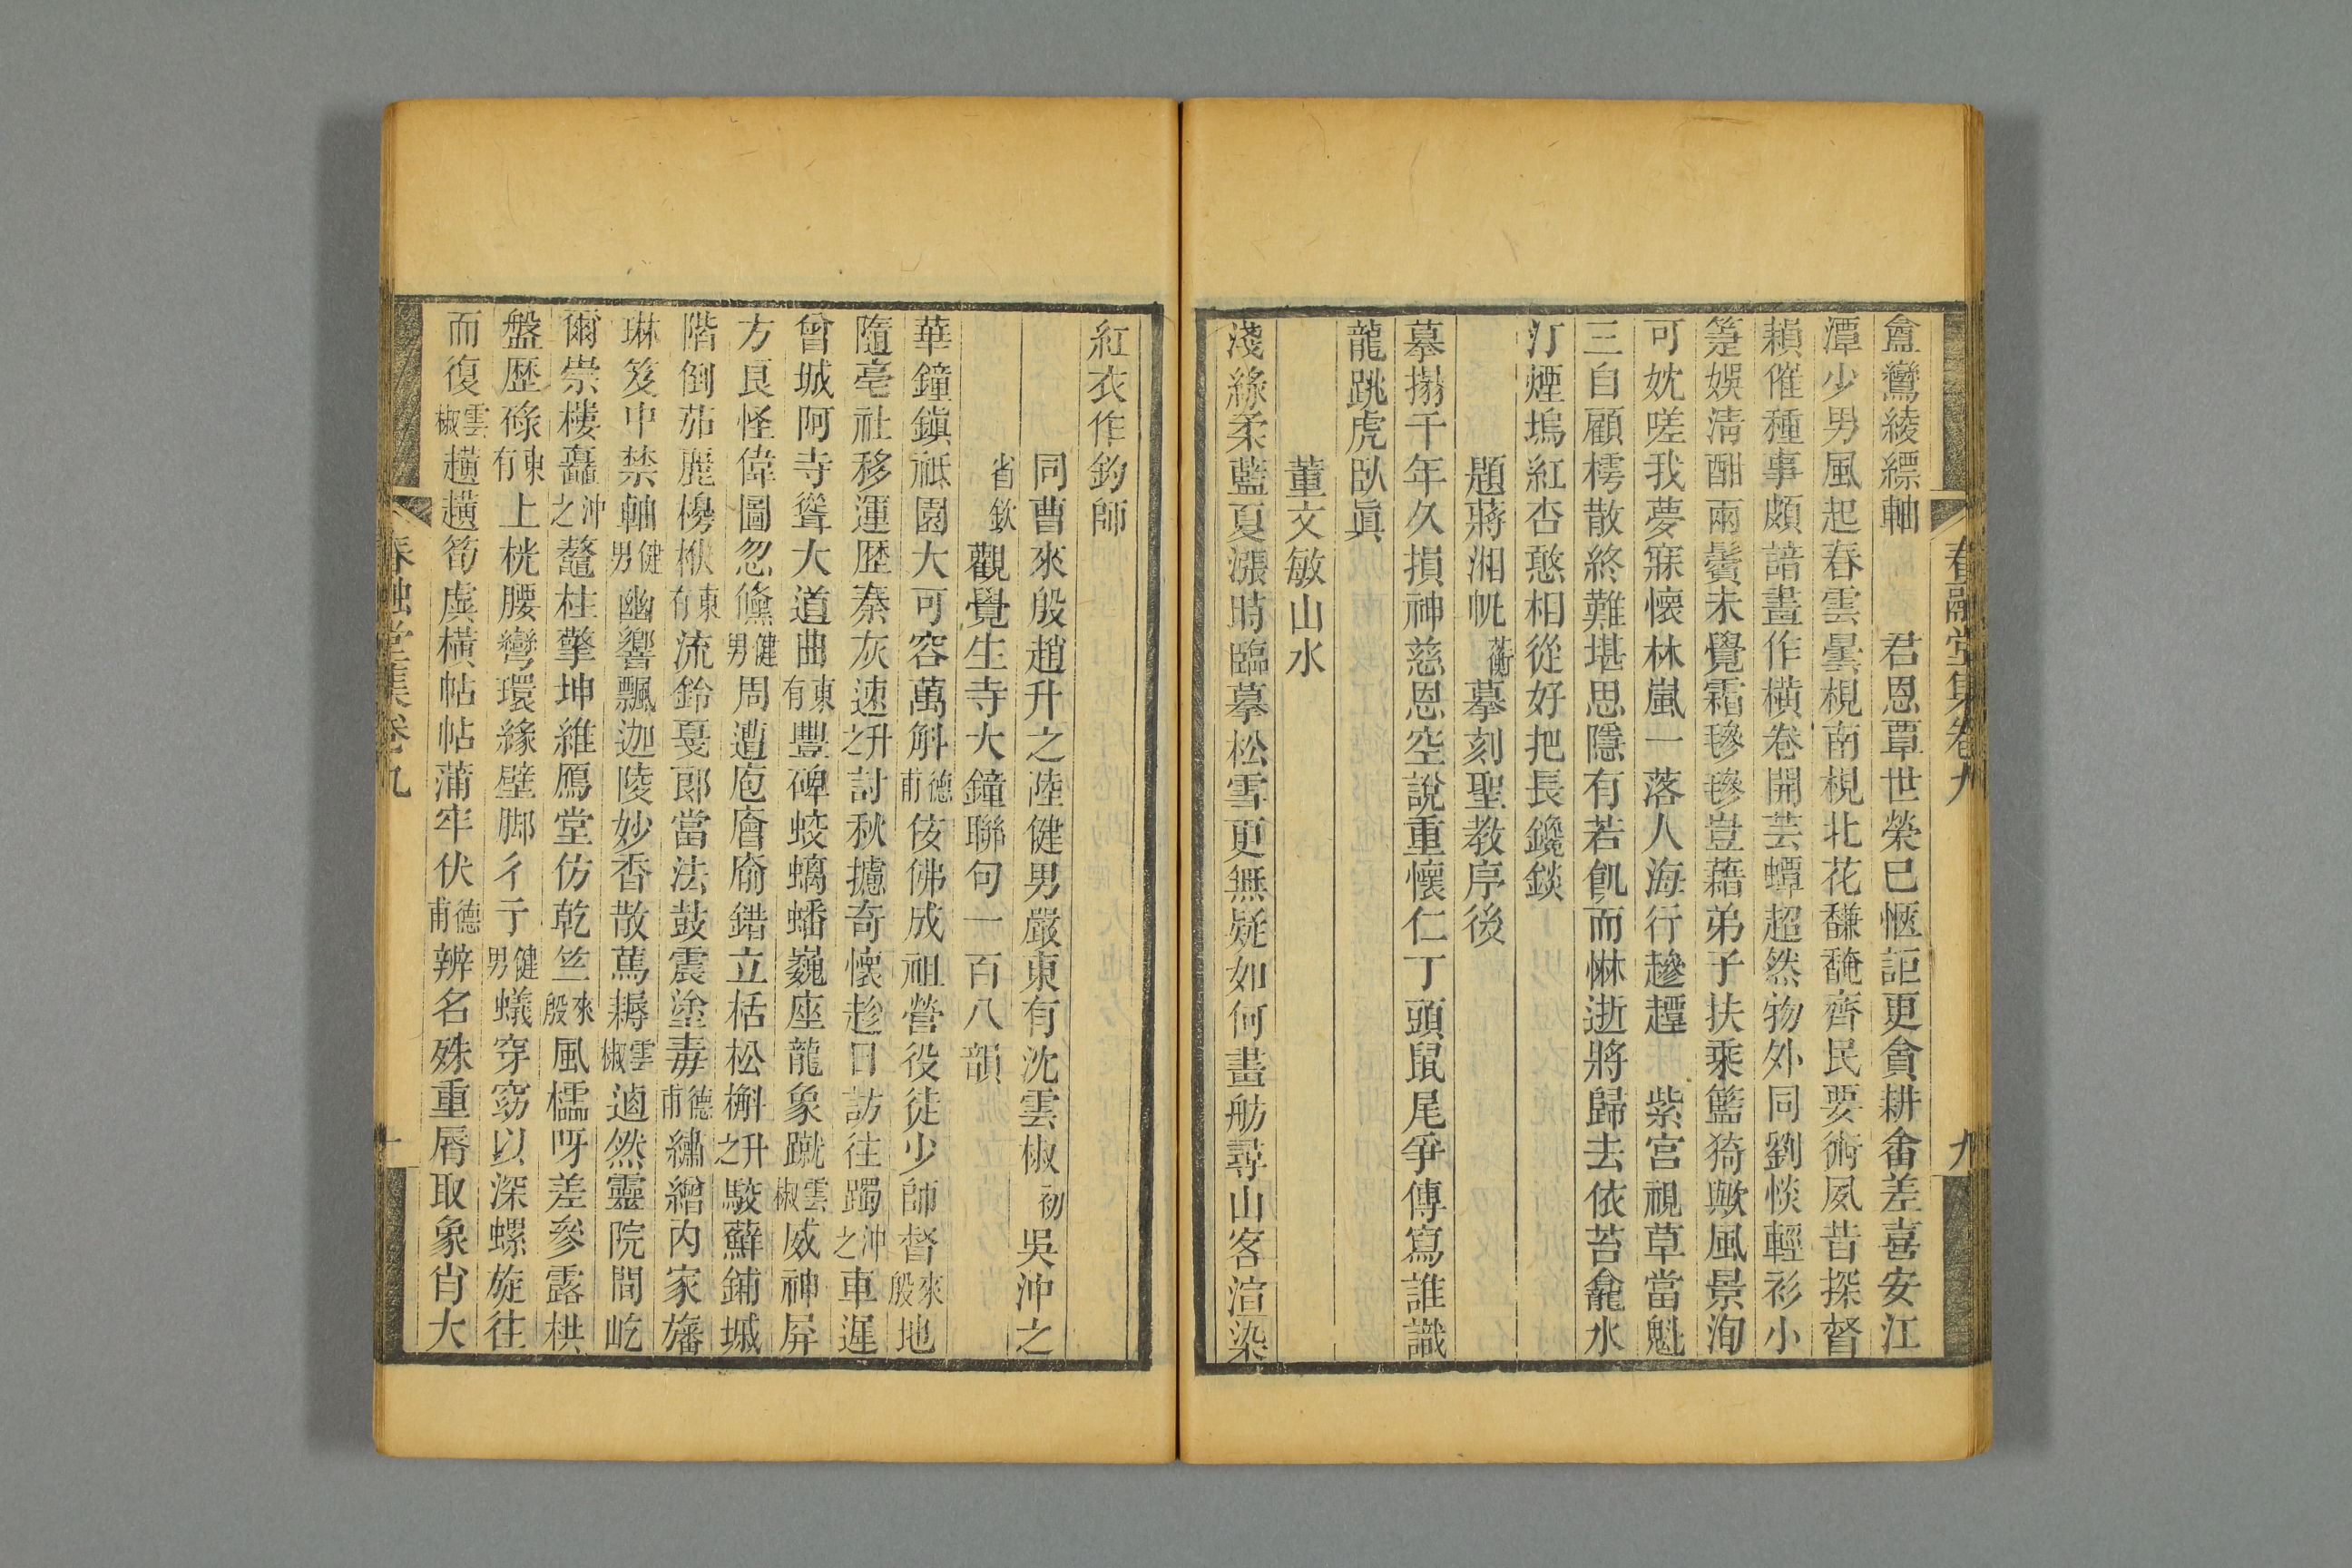 春融堂集卷九
九
奩鸞綾縹軸　君恩覃世榮已愜詎更貪耕畬差喜安江
潭少男風起春雲曇梘南梘北花馦馣齊民要術夙昔探督
耕催種事頗諳畫作橫卷開芸蟫超然物外同劉惔輕衫小
箑娛清酣兩鬢未覺霜毿毿豈藉弟子扶乘籃猗歟風景洵
可妉嗟我夢寐懷林嵐一落人海行趁　紫宮視草當魁
三自顧樗散終難堪思隱有若飢而惏逝將歸去依苔龕水
汀煙塢紅杏憨相從好把長鑱錟
題蔣湘帆衡摹刻聖教序後
摹搨千年久損神慈恩空說重懷仁丁頭鼠尾爭傳寫誰識
龍跳虎臥真
董文敏山水
淺綠柔藍夏漲時臨摹松雪更無疑如何畫舫尋山客渲染
紅衣作釣師
同曹來殷趙升之陸健男嚴東有沈雲椒初吳沖之
省欽觀覺生寺大鐘聯句一百八韻
華鐘鎮祇園大可容萬斛德甫侅佛成祖營役徒少師督來殷地
隨亳社移運歷秦灰速升之討秋攄奇懷趁日訪往躅沖之車遲
曾城阿寺聳大道曲東有豐碑蛟螭蟠巍座龍象蹴雲椒威神屏
方良怪偉圖忽儵健男周遭庖廥廯錯立栝松槲升之駮蘚鋪墄
階倒茄麗榱栿東有流鈴戛郎當法鼓震塗毒德甫繡繒內家旛
琳笈中禁軸健男幽響飄迦陵妙香散蔦耨雲椒逌然靈院間屹
爾崇樓矗沖之鼇柱擎坤維鴈堂仿乾竺來殷風檽呀差參露栱
盤歷碌東有上桄腰彎環緣壁腳彳亍健男蟻穿窈以深螺旋往
而復雲椒趪趪筍虡橫帖帖蒲牢伏德甫辨名殊重脣取象肖大
春融堂集卷九
十